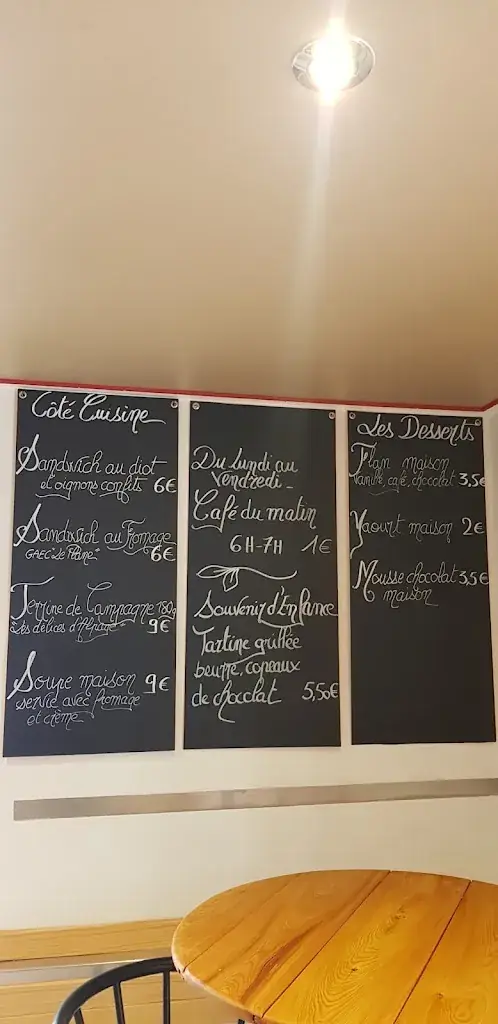 Côté Cuisine
Sandwich au diot
et oignons confits 6€
Sandwich au Fromage
GAEC "Le Plane" 6€
Terrine de Campagne 180g
Les délices d'Alpage 9€
Soupe maison 9€
servie avec fromage
et crème
Du lundi au
vendredi -
Café du matin
6H-7H 1€
Souvenir d'Enfance
Tartine grillée
beurre, copeaux
de chocolat 5,50€
Les Desserts
Flan maison
vanille, café, chocolat 3,5€
Yaourt maison 2€
Mousse chocolat 3,5€
maison